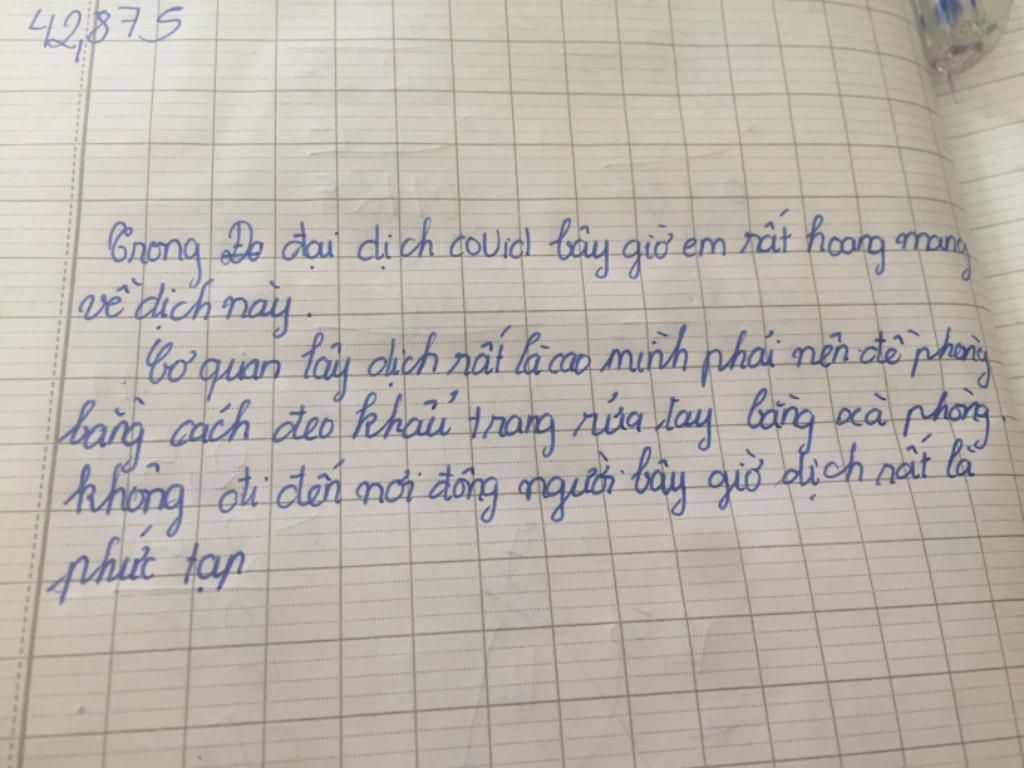 42,875
Trong Do đại dịch covid bây giờ em rất hoang mang
về dịch này.
Cơ quan lây dịch rất là cao mình phải nên đề phòng
bằng cách đeo khẩu trang rửa tay bằng xà phòng.
không đi đến nơi đông người bây giờ dịch rất là
phức tạp